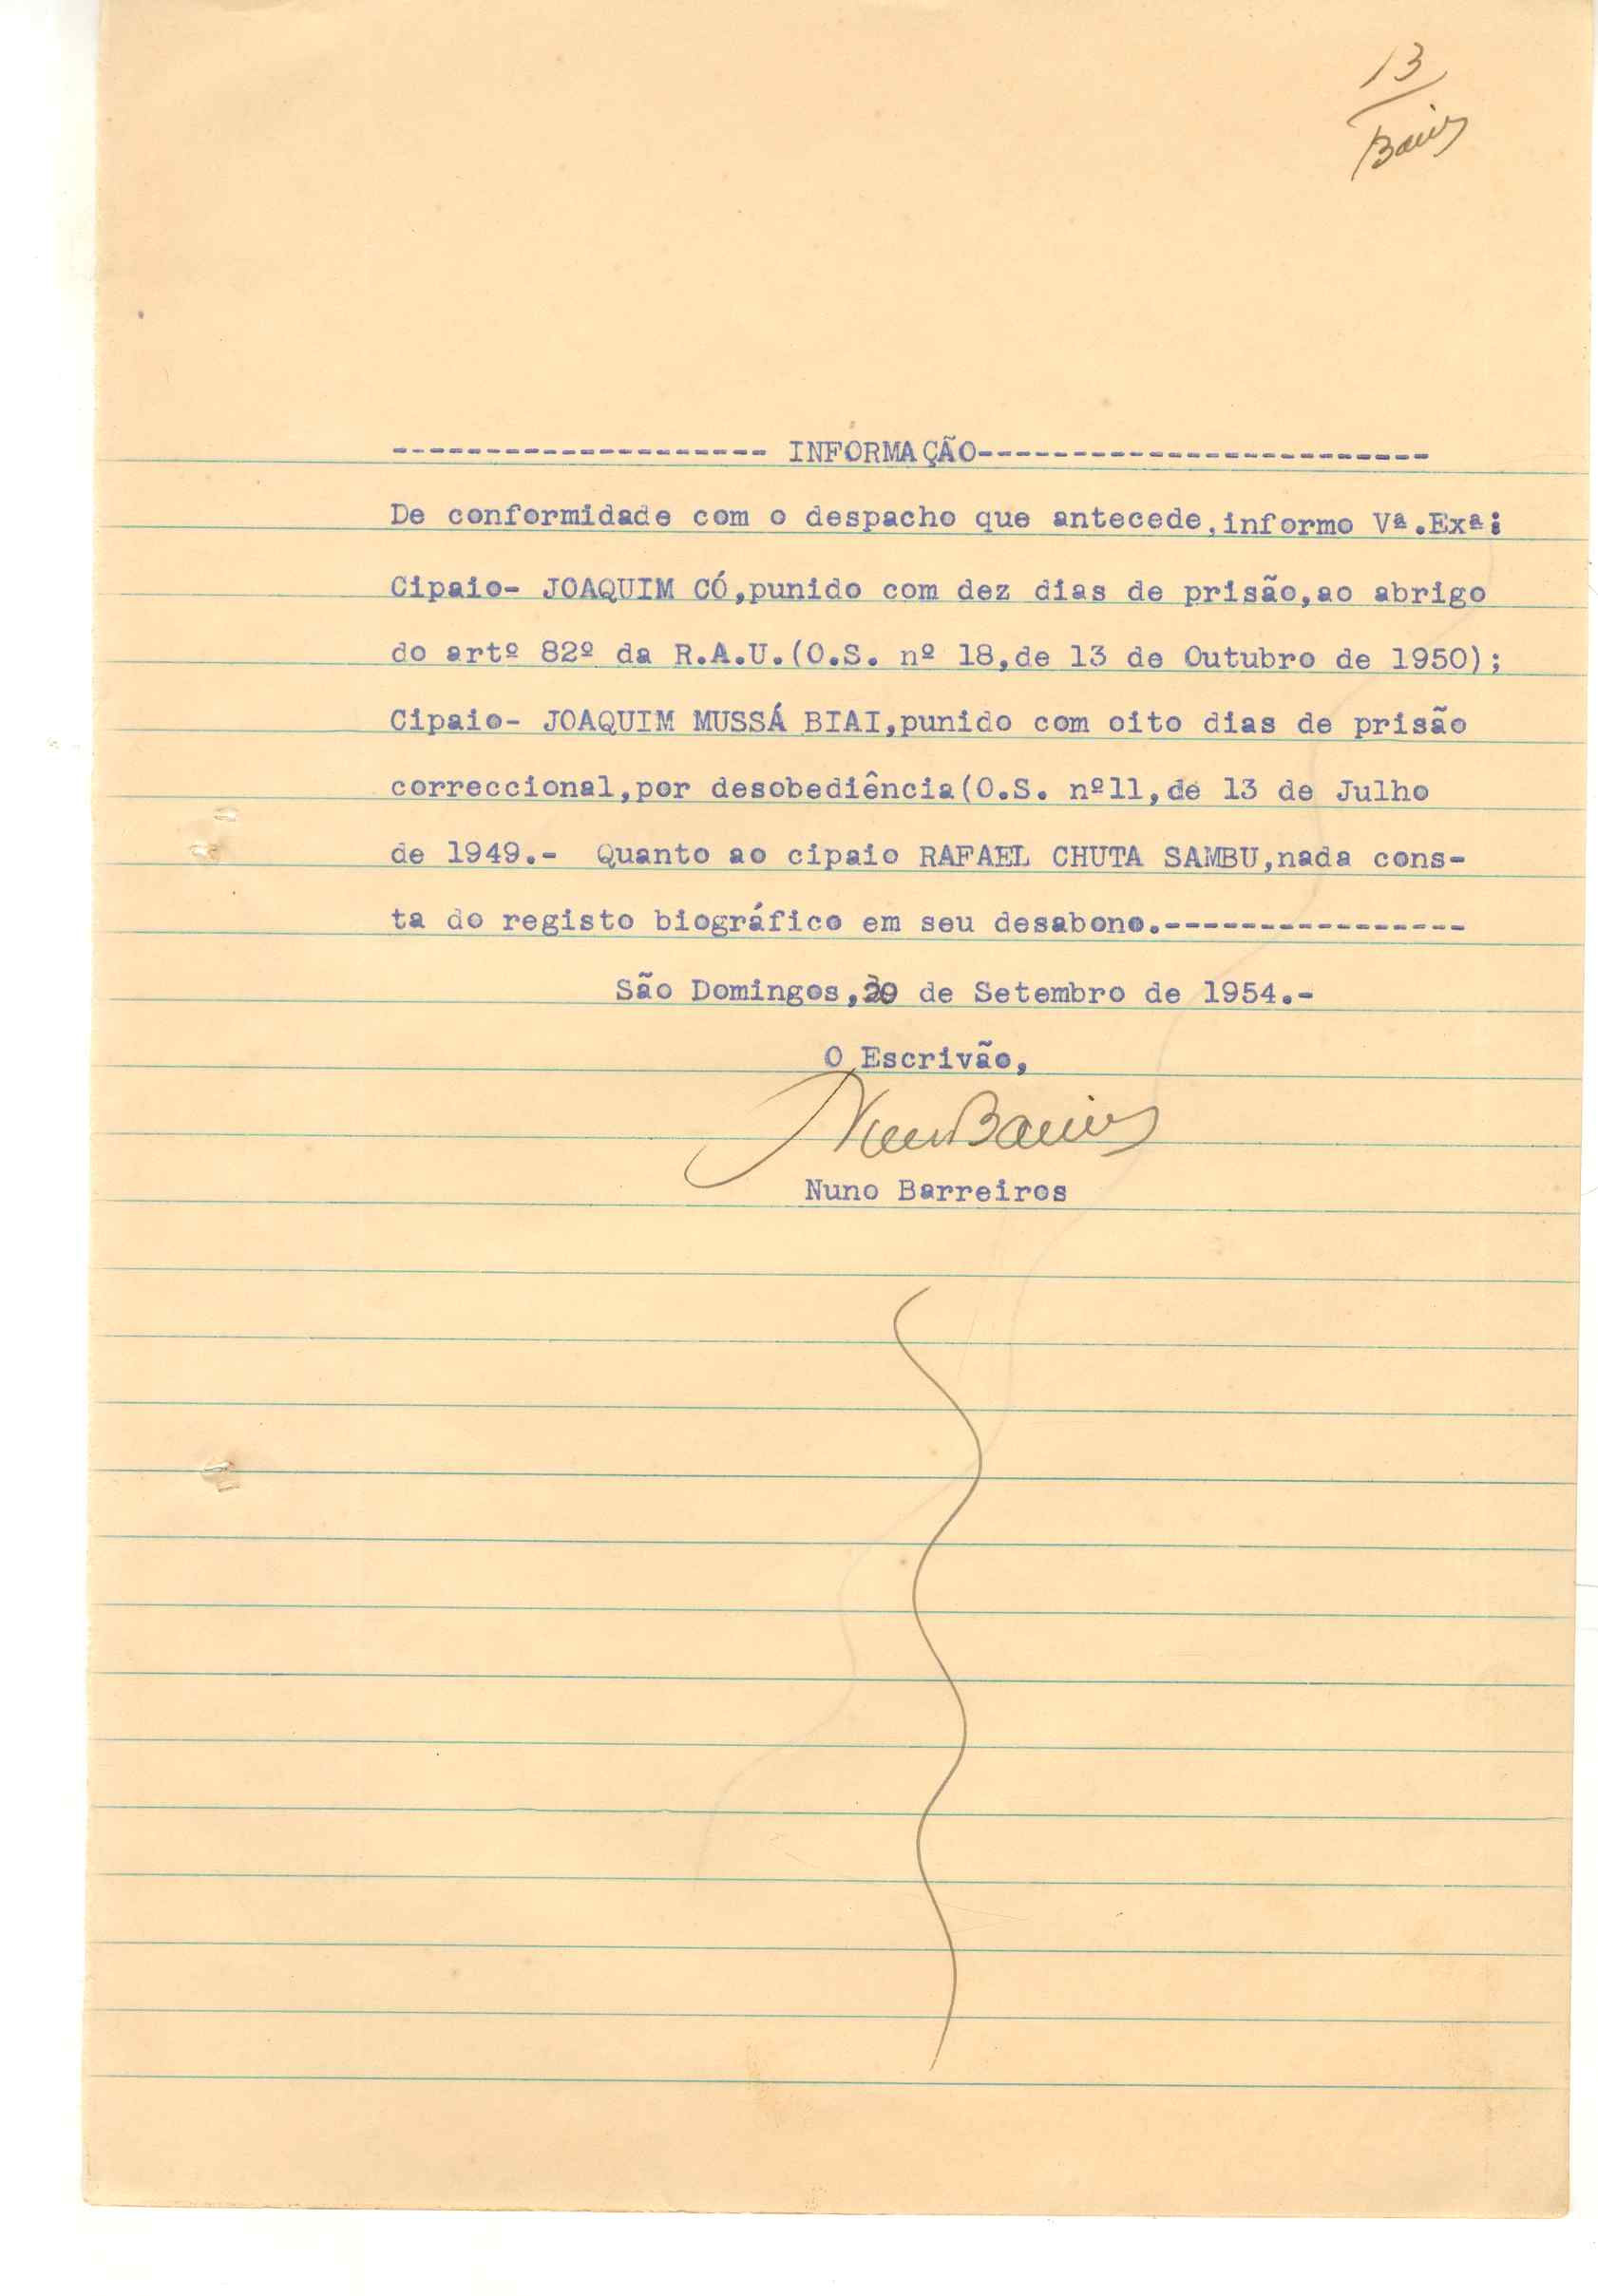 13
-------------------- INFORMAÇÃO------------------------
De conformidade com o despacho que antecede,informo Vª.Exª:
Cipaio- JOAQUIM CÓ,punido com dez dias de prisão,ao abrigo
do artº 82º da R.A.U.(O.S. nº 18,de 13 de Outubro de 1950);
Cipaio- JOAQUIM MUSSÁ BIAI,punido com oito dias de prisão
correccional,por desobediência(O.S. nº11,de 13 de Julho
de 1949.- Quanto ao cipaio RAFAEL CHUTA SAMBU,nada cons-
ta do registo biográfico em seu desabono.----------------
São Domingos, de Setembro de 1954.-
O Escrivão,
Nuno Barreiros